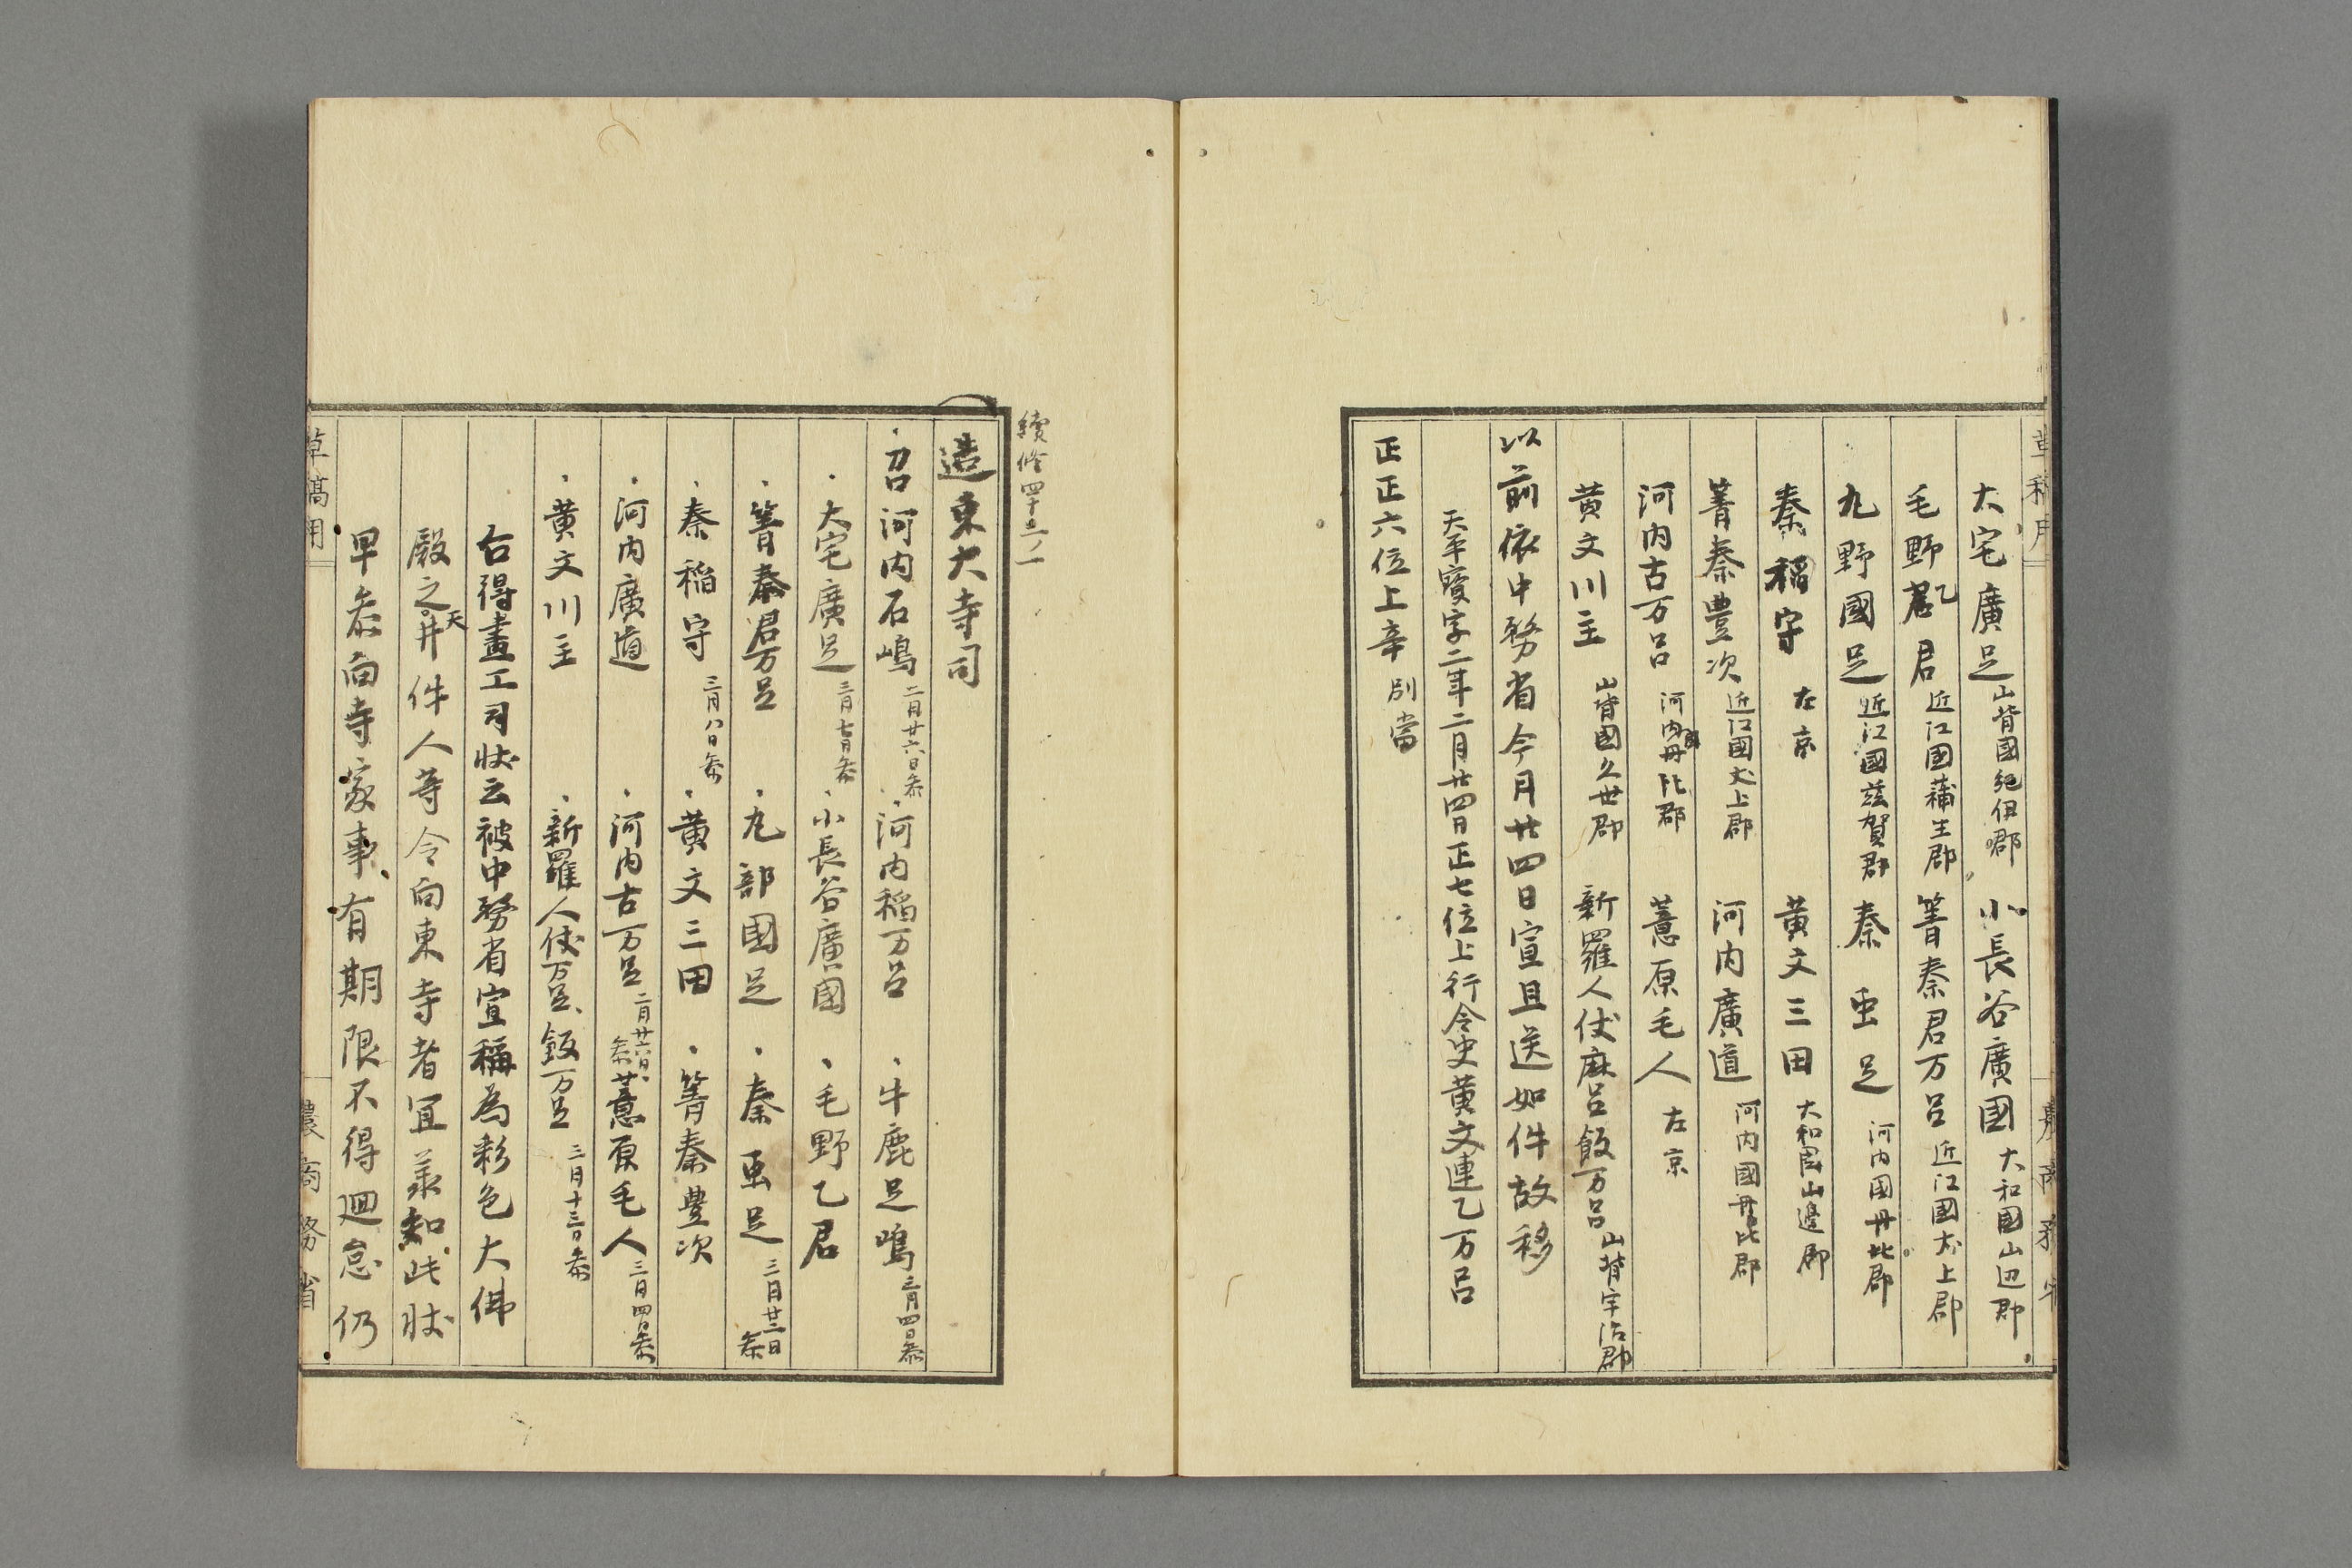 大宅廣足 山背國紀伊郡 小長谷廣國 大和國山辺郡
毛野乙君 近江國蒲生郡 箐秦君万呂 近江國犬上郡
九野國足 近江國茲賀郡 秦虫足 河内國丹比郡
秦稲守 左京 黄文三田 大和國山邊郡
箐秦豊次 近江國犬上郡 河内廣道 河内國丹比郡
河内古万呂 河内國丹比郡 薏原毛人 左京
黄文川主 山背國久世郡 新羅人伏麻呂飯万呂 山背宇治郡
以前依中務省今月廿四日宣且送如件故移
天平寳字二年二月廿四日正七位上行令史黄文連乙万呂
正正六位上辛 別當
續修四十三ノ一
造東大寺司
召河内石嶋 二月廿六日参 河内稲万呂 牛鹿足嶋 三月四日参
大宅廣足 三月七日参 小長谷廣國 毛野乙君
箐秦君万呂 九部國足 秦虫足 三月廿二日参
秦稲守 三月八日参 黄文三田 箐秦豊次
河内廣道 河内古万呂 二月廿六日参 薏原毛人 三月四日参
黄文川主 新羅人伏万呂 飯万呂 三月十三日参
右得畫工司状云被中務省宣稱為彩色大佛
殿之天井件人等令向東寺者宜承知此状
早参向寺家事有期限不得廻怠仍
草稿用
農商務省